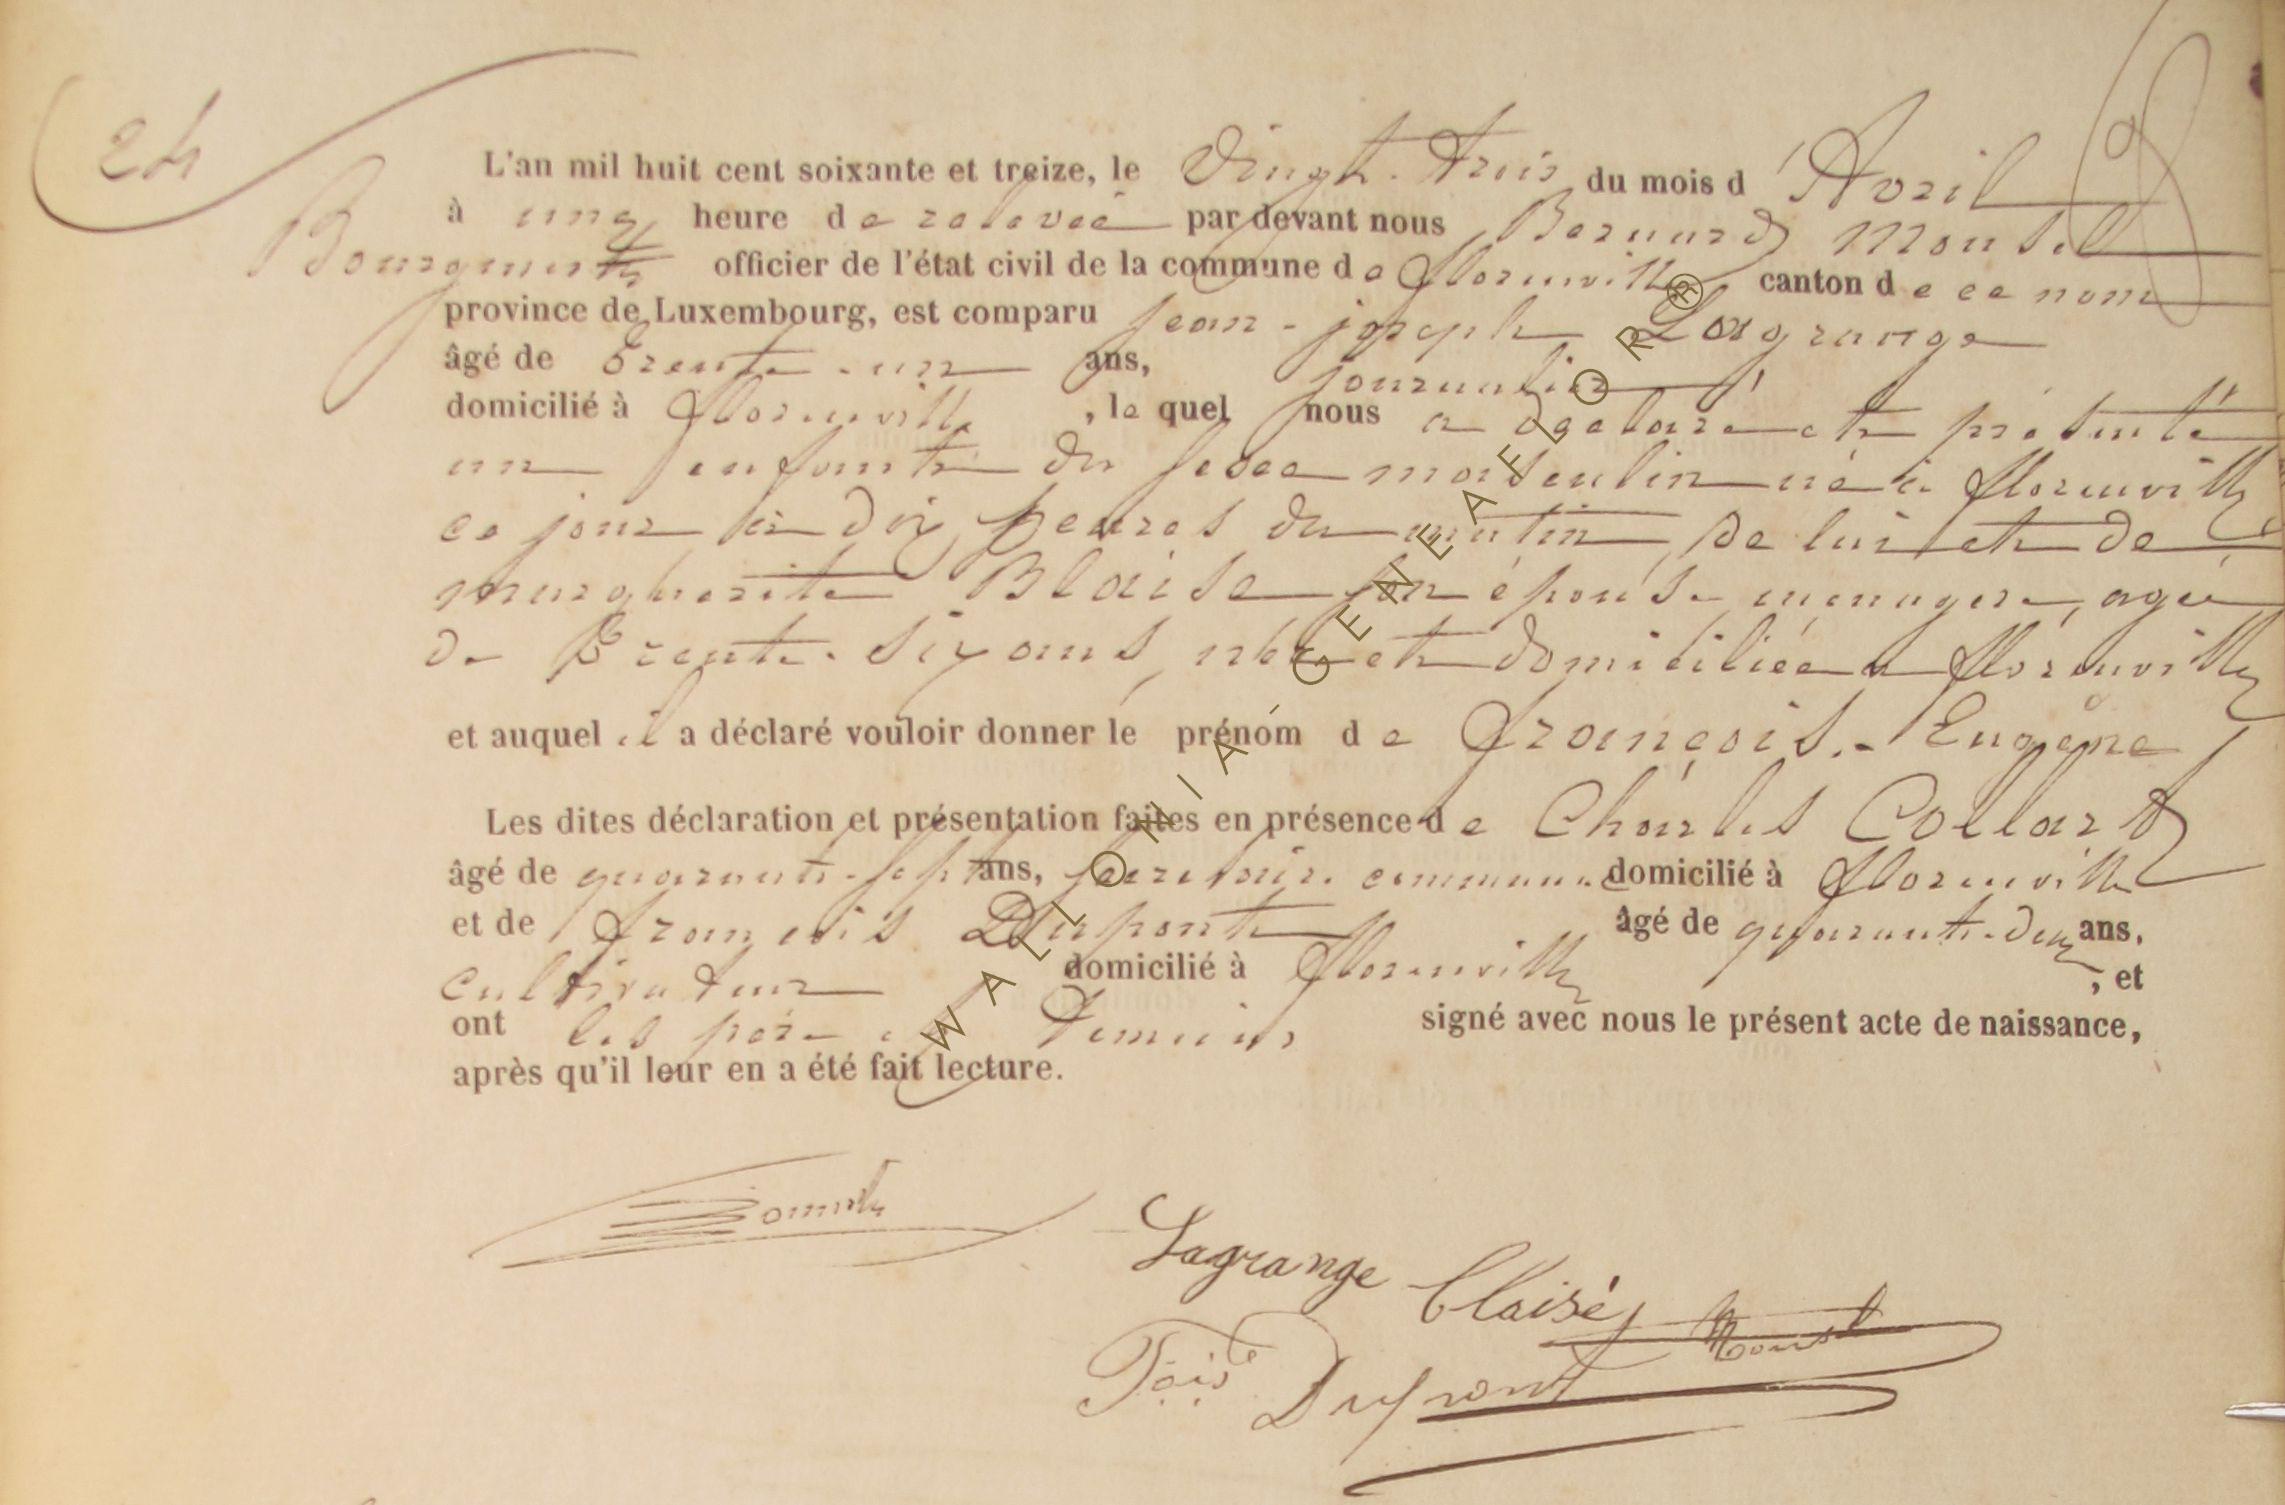 24
L'an mil huit cent soixante et treize, le Vingt-trois du mois d'Avril
à cinq heure de relevée par devant nous Bernard Mousel
Bourgmestre officier de l'état civil de la commune de florenville canton de ce nom
province de Luxembourg, est comparu jean-joseph Lagrange
âgé de trente-un ans, journalier
domicilié à florenville, le quel nous a déclaré et présenté
un enfant du sexe masculin né à florenville
ce jour à dix heures du matin, de lui et de
marguerite Blaise son épouse ménagère, agée
de trente-six ans, née et domiciliée a florenville
et auquel il a déclaré vouloir donner le prénom de françois-Eugène
Les dites déclaration et présentation faites en présence de Charles Collard
âgé de quarante-sept ans, secretaire communal domicilié à florenville
et de françois Dupont âgé de quarante-deux ans,
cultivateur domicilié à florenville, et
ont les père et temoins signé avec nous le présent acte de naissance,
après qu'il leur en a été fait lecture.
Lagrange Blaise
Mousel
Fçois Dupont
WALLONIA, GENEAFLOR®